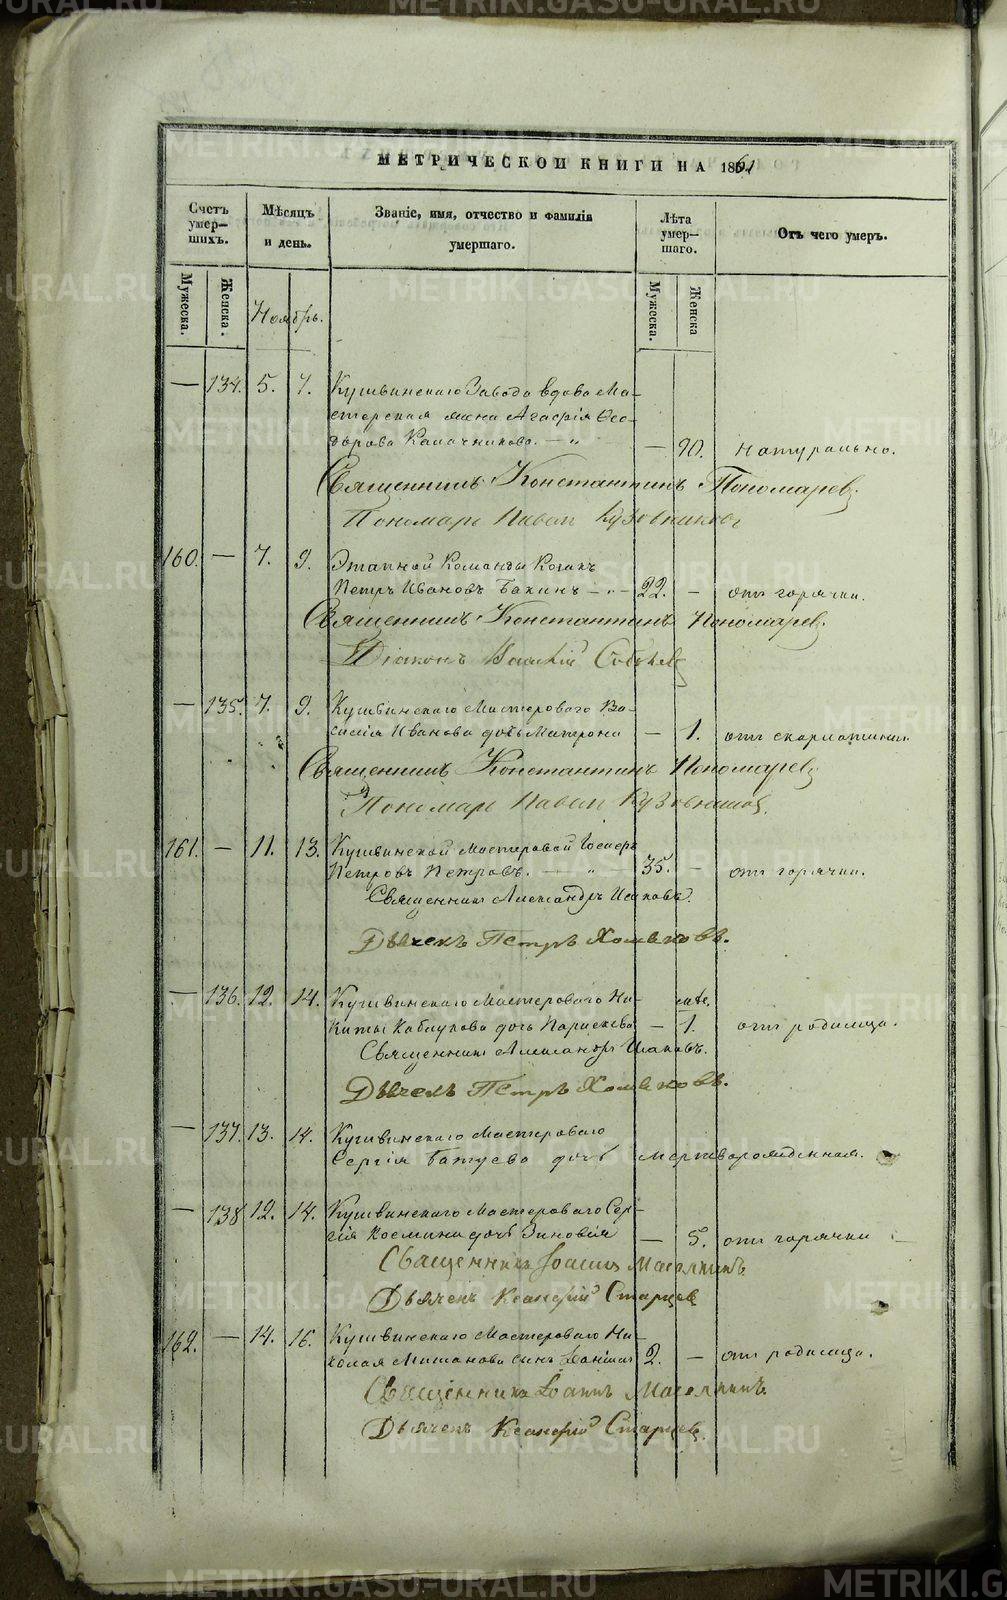 МЕТРИЧЕСКОЙ КНИГИ НА 1861
Счетъ умер-шихъ.
Мѣсяцъ и день.
Званіе, имя, отчество и фамилія умершаго.
Лѣта умер-шаго.
Отъ чего умеръ.
Мужеска.
Женска.
Мужеска.
Женска
Ноябрь.
— 134. 5. 7. Кушвинскаго Завода вдова Ма-
стерская жена Агафія Ѳео-
дорова Калачникова. — „ — 90. натурально.
Священникъ Константинъ Пономаревъ
Пономарь Павелъ Кузовников
160. — 7. 9. Этапной Команды Козакъ
Петръ Ивановъ Бакинъ — „ — 22. — отъ горячки.
Священникъ Константинъ Пономаревъ
Діаконъ Василій
— 135. 7. 9. Кушвинскаго Мастероваго Ва-
силія Иванова дочь Матрона — 1. отъ скарлатины
Священникъ Константинъ Пономаревъ
Пономарь Павелъ Кузовников
161. — 11. 13. Кушвинской Мастеровой
Петровъ Петровъ. — „ 35. — отъ горячки.
Священникъ Александръ Исаковъ.
Дьячекъ Петръ Хомяковъ.
— 136. 12. 14. Кушвинскаго Мастероваго Ни-
киты Кабаукова дочь Параскева — 1. отъ родимца.
Священникъ Александръ Исаковъ.
Дьячекъ Петръ Хомяковъ.
— 137. 13. 14. Кушвинскаго Мастероваго
Сергія Батуева дочь мертворожденная.
— 138 12. 14. Кушвинскаго Мастероваго Сер-
гія Космина дочь Зиновія — 5. отъ горячки
Священникъ Іоаннъ
Дьячекъ Ксанфій Старцев
162. — 14. 16. Кушвинскаго Мастероваго Ни-
колая сынъ Даніилъ 2. — отъ родимца.
Священникъ Іоаннъ
Дьячекъ Ксанфій Старцев.
METRIKI.GASO-URAL.RU